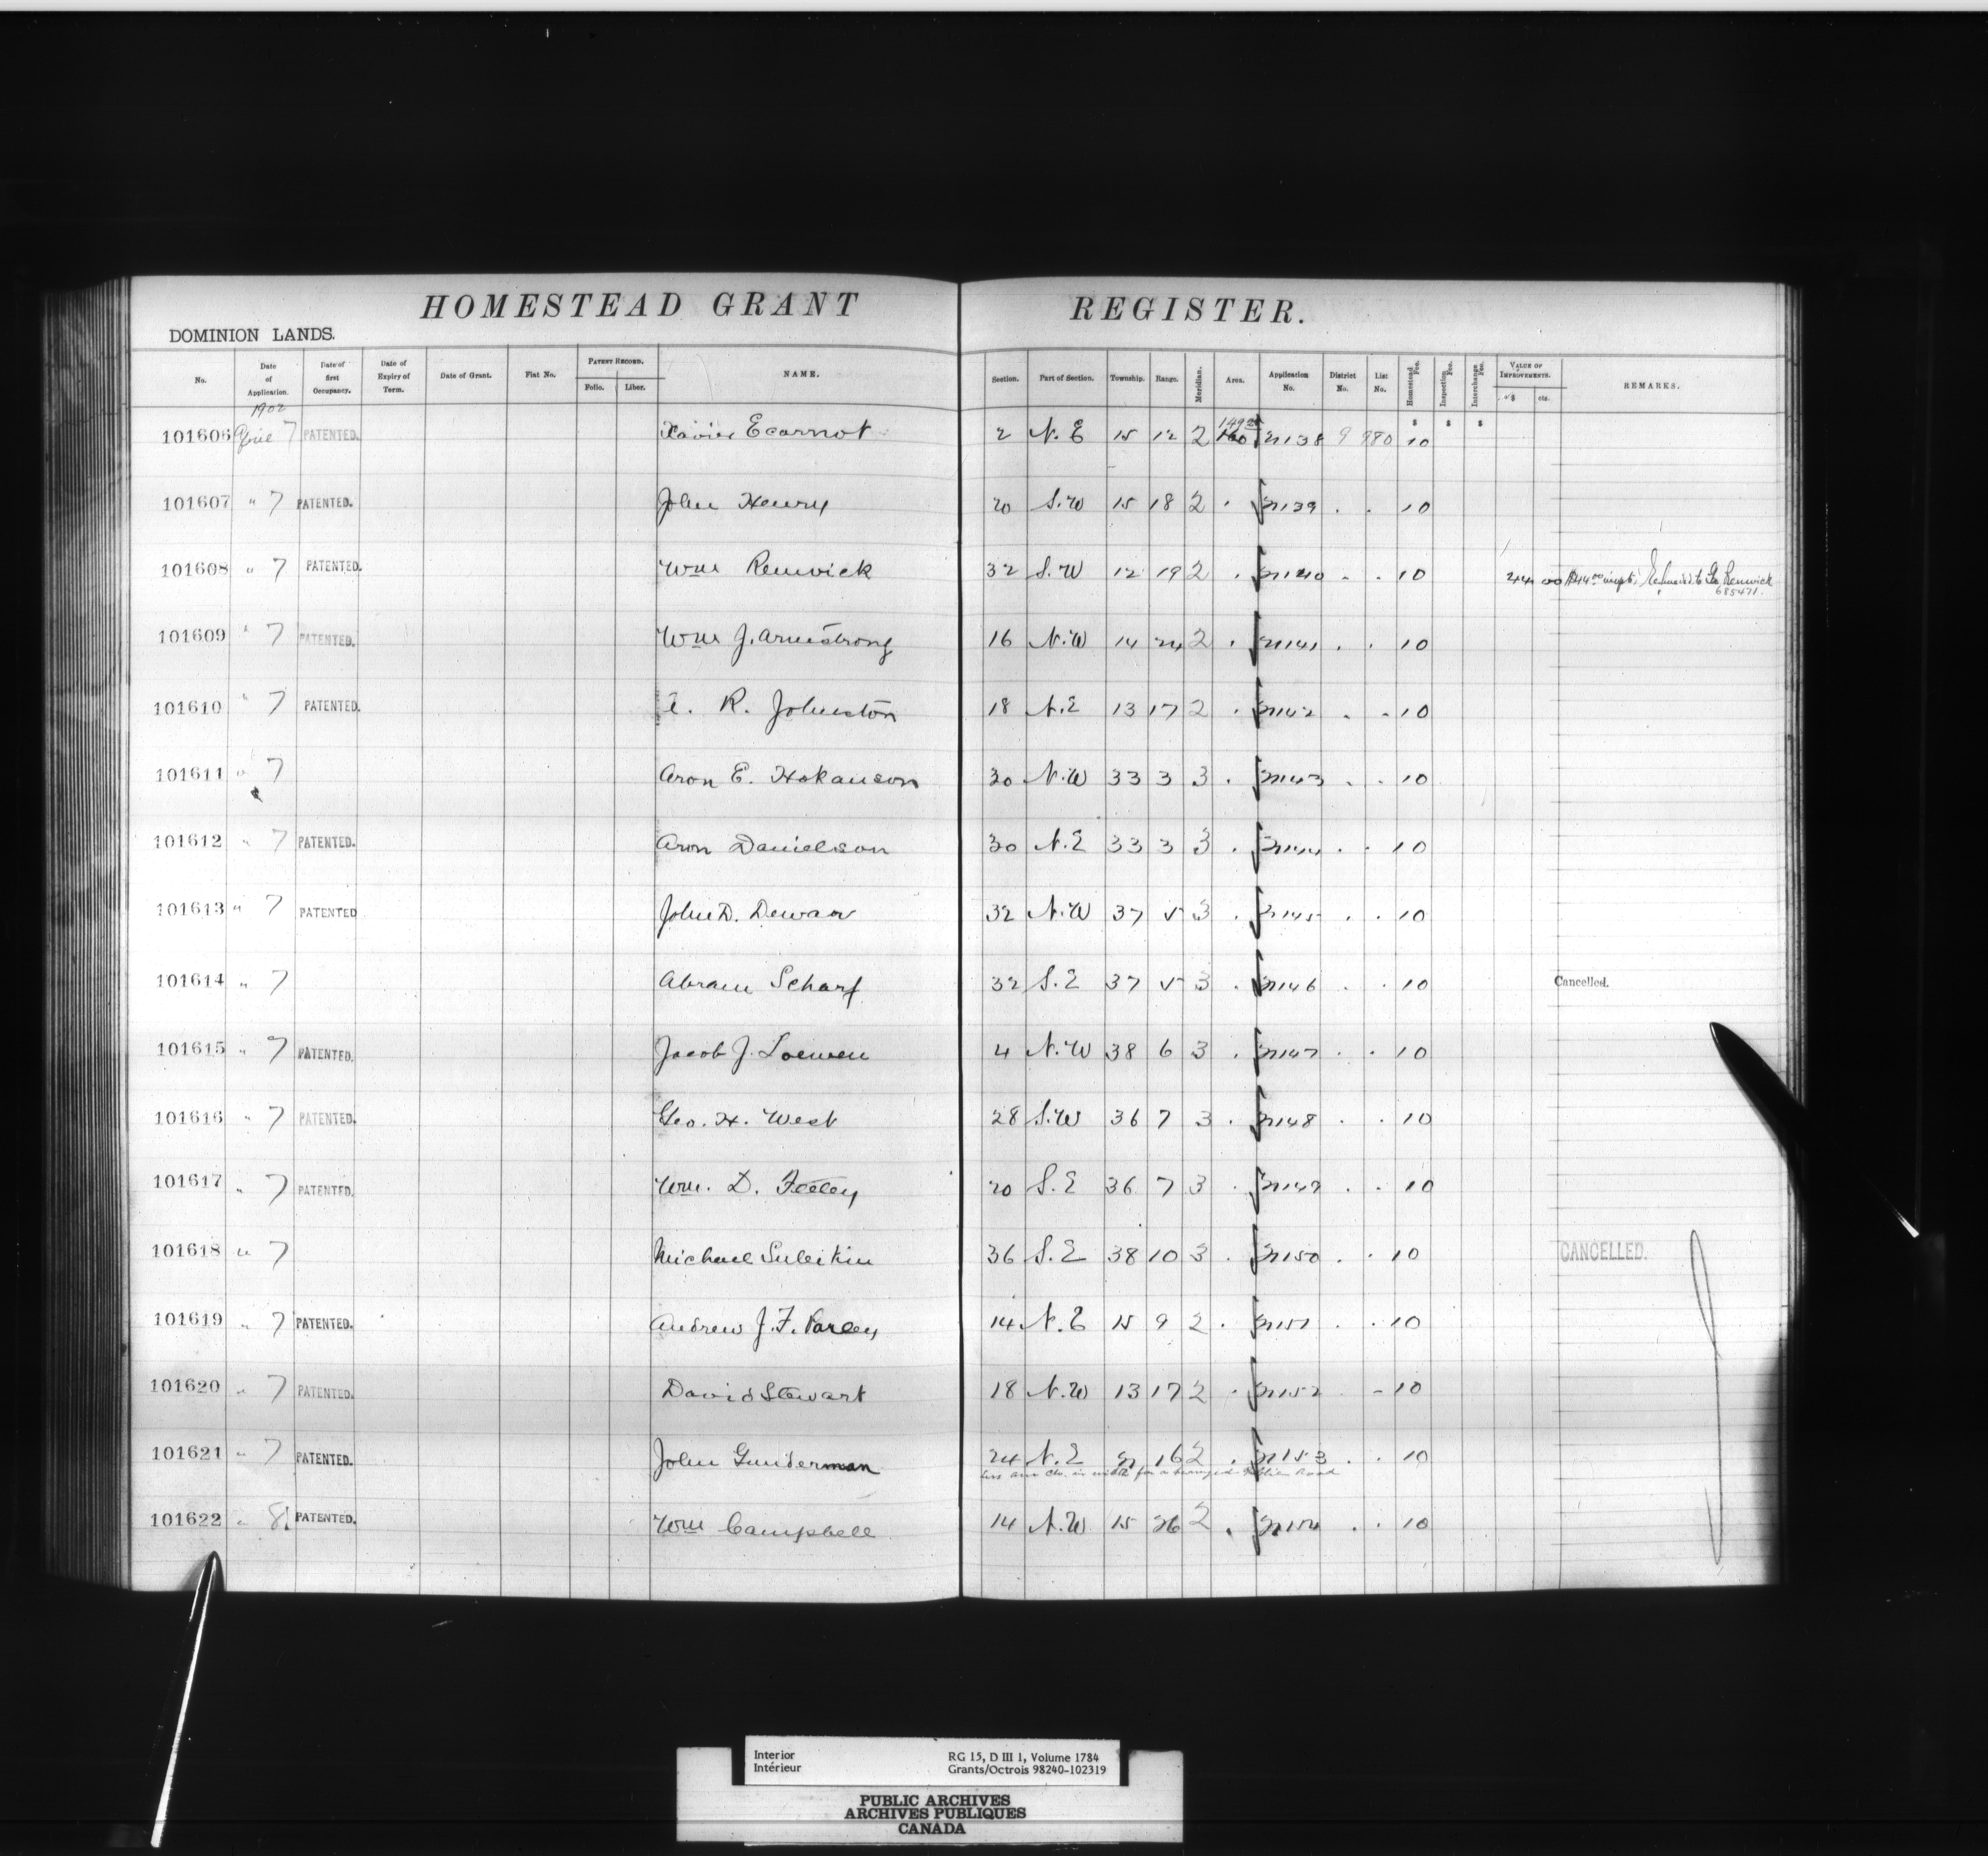 HOMESTEAD GRANT REGISTER.
DOMINION LANDS.
No. Date of Application. Date of first Occupancy. Date of Expiry of Term. Date of Grant. Fiat No. PATENT RECORD. Folio. Liber. NAME. Section. Part of Section. Township. Range. Meridian. Area. Application No. District No. List No. Homestead Fee. Inspection Fee. Interchange Fee. VALUE OF IMPROVEMENTS. $ cts. REMARKS.
1902
101606 7 PATENTED. Xavier Ecarnot 2 N.E 15 12 2 160 21138 9 980 10
101607 " 7 PATENTED. John Henry 20 S.W 15 18 2 . 21139 . . 10
101608 " 7 PATENTED. Wm Renwick 32 S.W 12 19 2 . 21140 . . 10 44 00 to Renwick
685471
101609 " 7 PATENTED. Wm J. Armstrong 16 N.W 14 24 2 . 21141 . . 10
101610 " 7 PATENTED. R. Johnston 18 N.E 13 17 2 . 21142 . . 10
101611 " 7 Aron E. Hokanson 30 N.W 33 3 3 . 21143 . . 10
101612 " 7 PATENTED. Aron Danielson 30 N.E 33 3 3 . 21144 . . 10
101613 " 7 PATENTED John D. Dewar 32 N.W 37 5 3 . 21145 . . 10
101614 " 7 Abram Scharf 32 S.E 37 5 3 . 21146 . . 10 Cancelled.
101615 " 7 PATENTED. Jacob J. Loewen 4 N.W 38 6 3 . 21147 . . 10
101616 " 7 PATENTED. Geo. H. West 28 S.W 36 7 3 . 21148 . . 10
101617 " 7 PATENTED. Wm. D. 20 S.E 36 7 3 . 21149 . . 10
101618 " 7 Michael Suleikin 36 S.E 38 10 3 . 21150 . . 10 CANCELLED.
101619 " 7 PATENTED. Andrew J. F. Varley 14 N.E 15 9 2 . 21151 . . 10
101620 " 7 PATENTED. David Stewart 18 N.W 13 17 2 . 21152 - 10
101621 " 7 PATENTED. John Gunderman 24 N.E 16 2 . 21153 . . 10
less in width for a surveyed Public Road
101622 " 8 PATENTED. Wm Campbell 14 N.W 15 26 2 . 21154 . . 10
Interior RG 15, D III 1, Volume 1784
Intérieur Grants/Octrois 98240-102319
PUBLIC ARCHIVES
ARCHIVES PUBLIQUES
CANADA